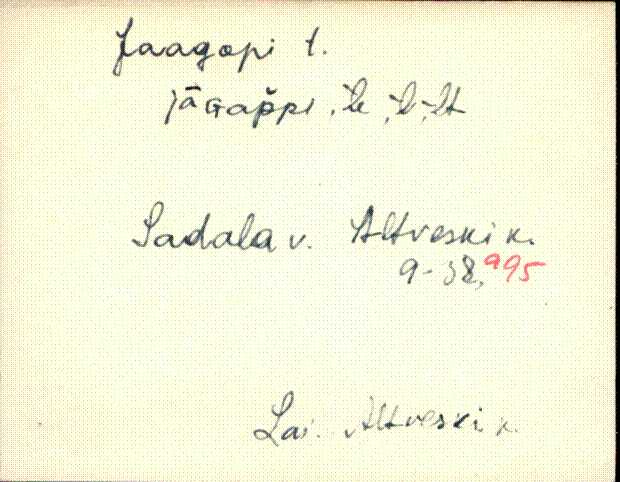 Jaagopi t.
jāGap̌pi, -le, -l, -lt
Sadala v. Altveski k.
9-38, 995
Lai. Altveski k.